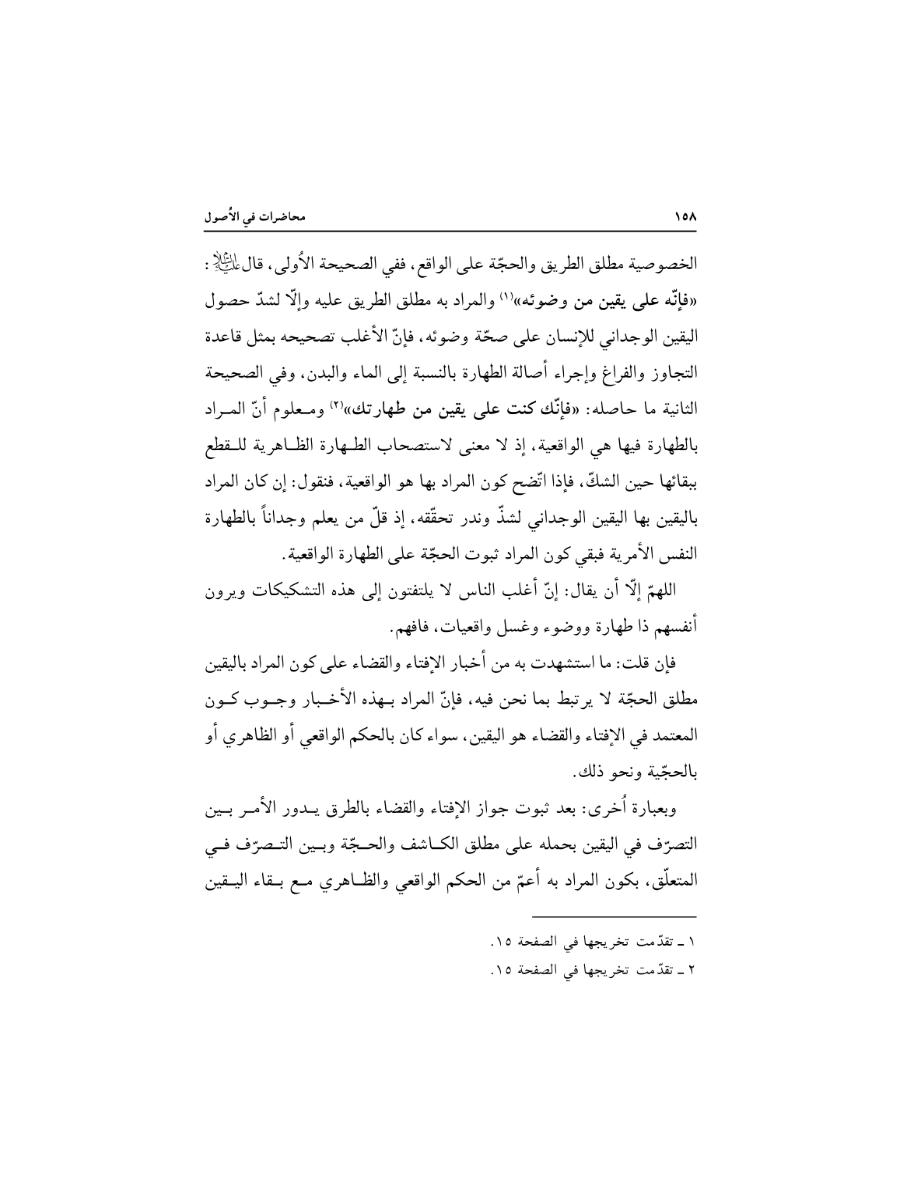 ١٥٨ محاضرات في الأُصول
الخصوصية مطلق الطريق والحجّة على الواقع، ففي الصحيحة الأُولى، قال عليه‌السلام:
«فإنّه على يقين من وضوئه»(١) والمراد به مطلق الطريق عليه وإلّا لشدّ حصول
اليقين الوجداني للإنسان على صحّة وضوئه، فإنّ الأغلب تصحيحه بمثل قاعدة
التجاوز والفراغ وإجراء أصالة الطهارة بالنسبة إلى الماء والبدن، وفي الصحيحة
الثانية ما حاصله: «فإنّك كنت على يقين من طهارتك»(٢) ومـعلوم أنّ المـراد
بالطهارة فيها هي الواقعية، إذ لا معنى لاستصحاب الطـهارة الظـاهرية للـقطع
ببقائها حين الشكّ، فإذا اتّضح كون المراد بها هو الواقعية، فنقول: إن كان المراد
باليقين بها اليقين الوجداني لشذّ وندر تحقّقه، إذ قلّ من يعلم وجداناً بالطهارة
النفس الأمرية فبقي كون المراد ثبوت الحجّة على الطهارة الواقعية.
اللهمّ إلّا أن يقال: إنّ أغلب الناس لا يلتفتون إلى هذه التشكيكات ويرون
أنفسهم ذا طهارة ووضوء وغسل واقعيات، فافهم.
فإن قلت: ما استشهدت به من أخبار الإفتاء والقضاء على كون المراد باليقين
مطلق الحجّة لا يرتبط بما نحن فيه، فإنّ المراد بـهذه الأخـبار وجـوب كـون
المعتمد في الإفتاء والقضاء هو اليقين، سواء كان بالحكم الواقعي أو الظاهري أو
بالحجّية ونحو ذلك.
وبعبارة اُخرى: بعد ثبوت جواز الإفتاء والقضاء بالطرق يـدور الأمـر بـين
التصرّف في اليقين بحمله على مطلق الكـاشف والحـجّة وبـين التـصرّف فـي
المتعلّق، بكون المراد به أعمّ من الحكم الواقعي والظـاهري مـع بـقاء اليـقين
١ ـ تقدّمت تخريجها في الصفحة ١٥.
٢ ـ تقدّمت تخريجها في الصفحة ١٥.